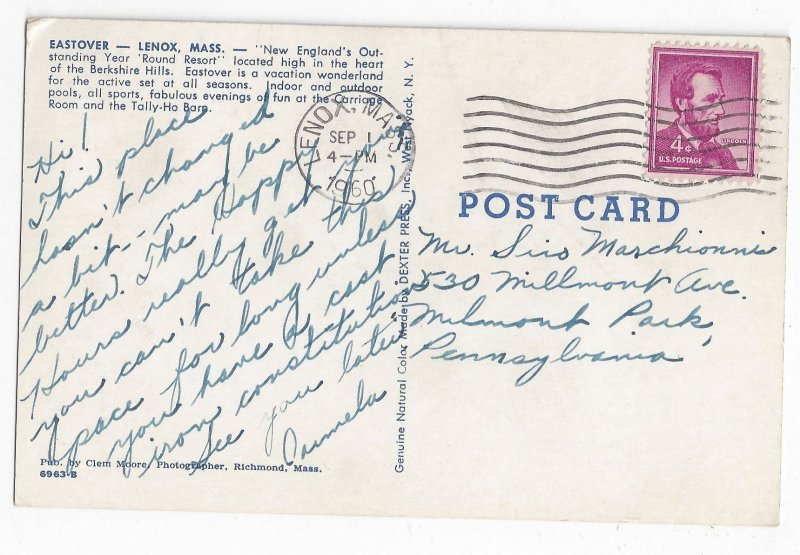 EASTOVER — LENOX, MASS. — "New England's Out-
standing Year 'Round Resort" located high in the heart
of the Berkshire Hills. Eastover is a vacation wonderland
for the active set at all seasons. Indoor and outdoor
pools, all sports, fabulous evenings of fun at the Carriage
Room and the Tally-Ho Barn.
Hi!
This place
hasn't changed
a bit -- may be
better. The Happy
Hours really get your
you can't take this
pace for long unless
you have a cast
iron constitution
See you later
Carmela
Pub. by Clem Moore, Photographer, Richmond, Mass.
6963-B
Genuine Natural Color Made by DEXTER PRESS, Inc., West Nyack, N. Y.
LENOX, MASS.
SEP 1
4-PM
1960
LINCOLN
4¢
U.S. POSTAGE
POST CARD
Mr. Siro Marchionni
530 Millmont Ave.
Milmont Park,
Pennsylvania